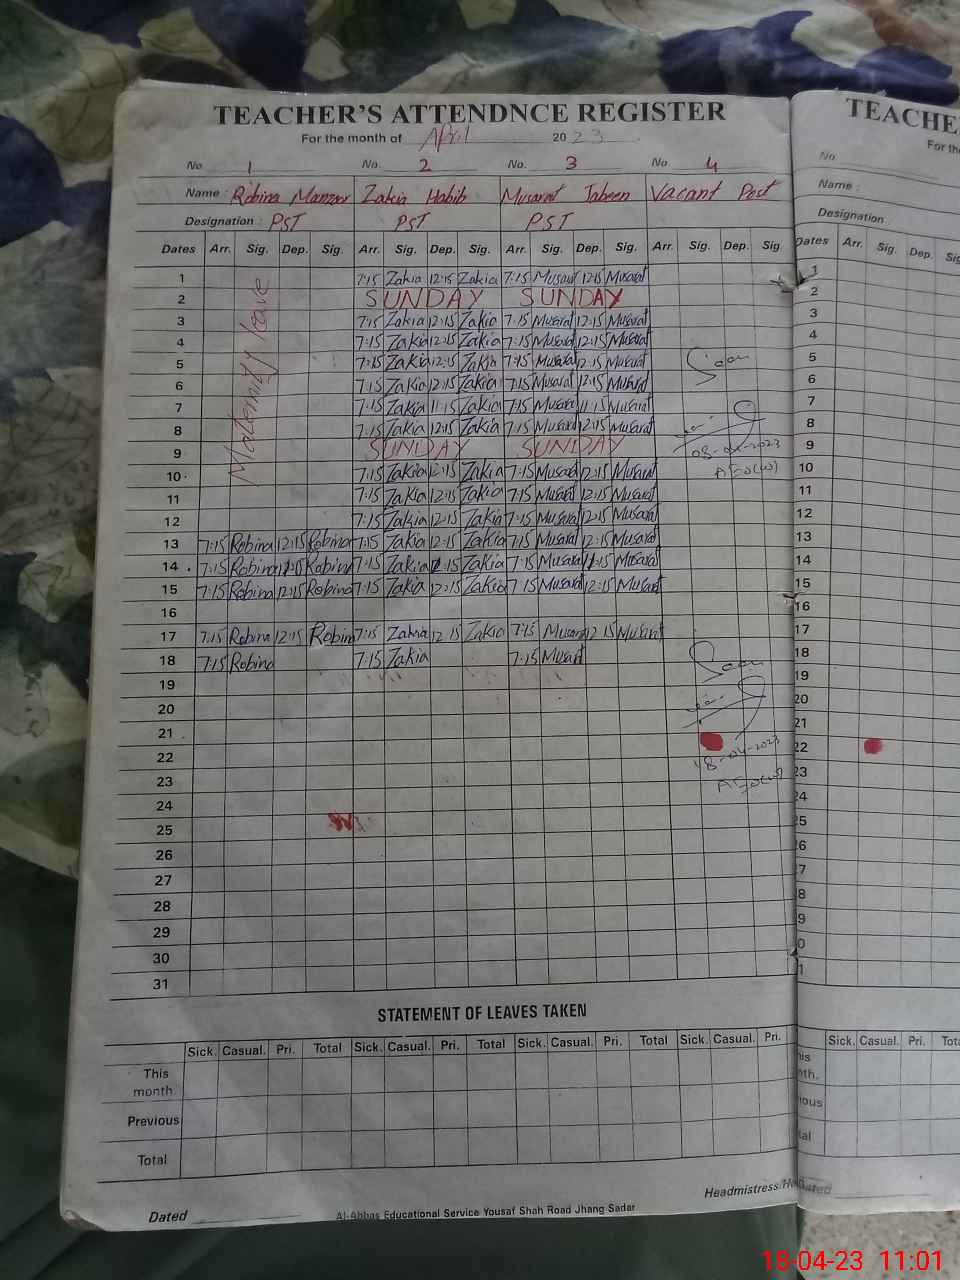 TEACHER'S ATTENDNCE REGISTER
For the month of April 2023
No. 1 No. 2 No. 3 No 4
Name : Robina Manzoor Zakia Habib Musarat Jabeen Vacant Post
Designation : PST PST PST
Dates Arr. Sig. Dep. Sig. Arr. Sig. Dep. Sig. Arr. Sig. Dep. Sig. Arr. Sig. Dep. Sig
Maternity leave
1 7:15 Zakia 12:15 Zakia 7:15 Musarat 12:15 Musarat
2 SUNDAY SUNDAY
3 7:15 Zakia 12:15 Zakia 7:15 Musarat 12:15 Musarat
4 7:15 Zakia 12:15 Zakia 7:15 Musarat 12:15 Musarat
5 7:15 Zakia 12:15 Zakia 7:15 Musarat 12:15 Musarat
6 7:15 Zakia 12:15 Zakia 7:15 Musarat 12:15 Musarat
7 7:15 Zakia 11:15 Zakia 7:15 Musarat 11:15 Musarat
8 7:15 Zakia 12:15 Zakia 7:15 Musarat 12:15 Musarat
9 SUNDAY SUNDAY
08-04-2023
AEO(W)
10 7:15 Zakia 12:15 Zakia 7:15 Musarat 12:15 Musarat
11 7:15 Zakia 12:15 Zakia 7:15 Musarat 12:15 Musarat
12 7:15 Zakia 12:15 Zakia 7:15 Musarat 12:15 Musarat
13 7:15 Robina 12:15 Robina 7:15 Zakia 12:15 Zakia 7:15 Musarat 12:15 Musarat
14 7:15 Robina 11:15 Robina 7:15 Zakia 11:15 Zakia 7:15 Musarat 11:15 Musarat
15 7:15 Robina 12:15 Robina 7:15 Zakia 12:15 Zakia 7:15 Musarat 12:15 Musarat
16
17 7:15 Robina 12:15 Robina 7:15 Zakia 12:15 Zakia 7:15 Musarat 12:15 Musarat
18 7:15 Robina 7:15 Zakia 7:15 Musarat
19
20
21
22
18-04-2023
23
AEO(W)
24
25
26
27
28
29
30
31
STATEMENT OF LEAVES TAKEN
Sick. Casual. Pri. Total Sick. Casual. Pri. Total Sick. Casual. Pri. Total Sick. Casual. Pri.
This
month.
Previous
Total
Headmistress/He
Dated
Al-Abbas Educational Service Yousaf Shah Road Jhang Sadar
TEACHE
For the
No
Name :
Designation
Dates Arr. Sig. Dep. Sig
1
2
3
4
5
6
7
8
9
10
11
12
13
14
15
16
17
18
19
20
21
22
23
24
25
26
27
28
29
30
31
Sick. Casual. Pri. Tota
his
nth.
ious
tal
Dated
18-04-23 11:01